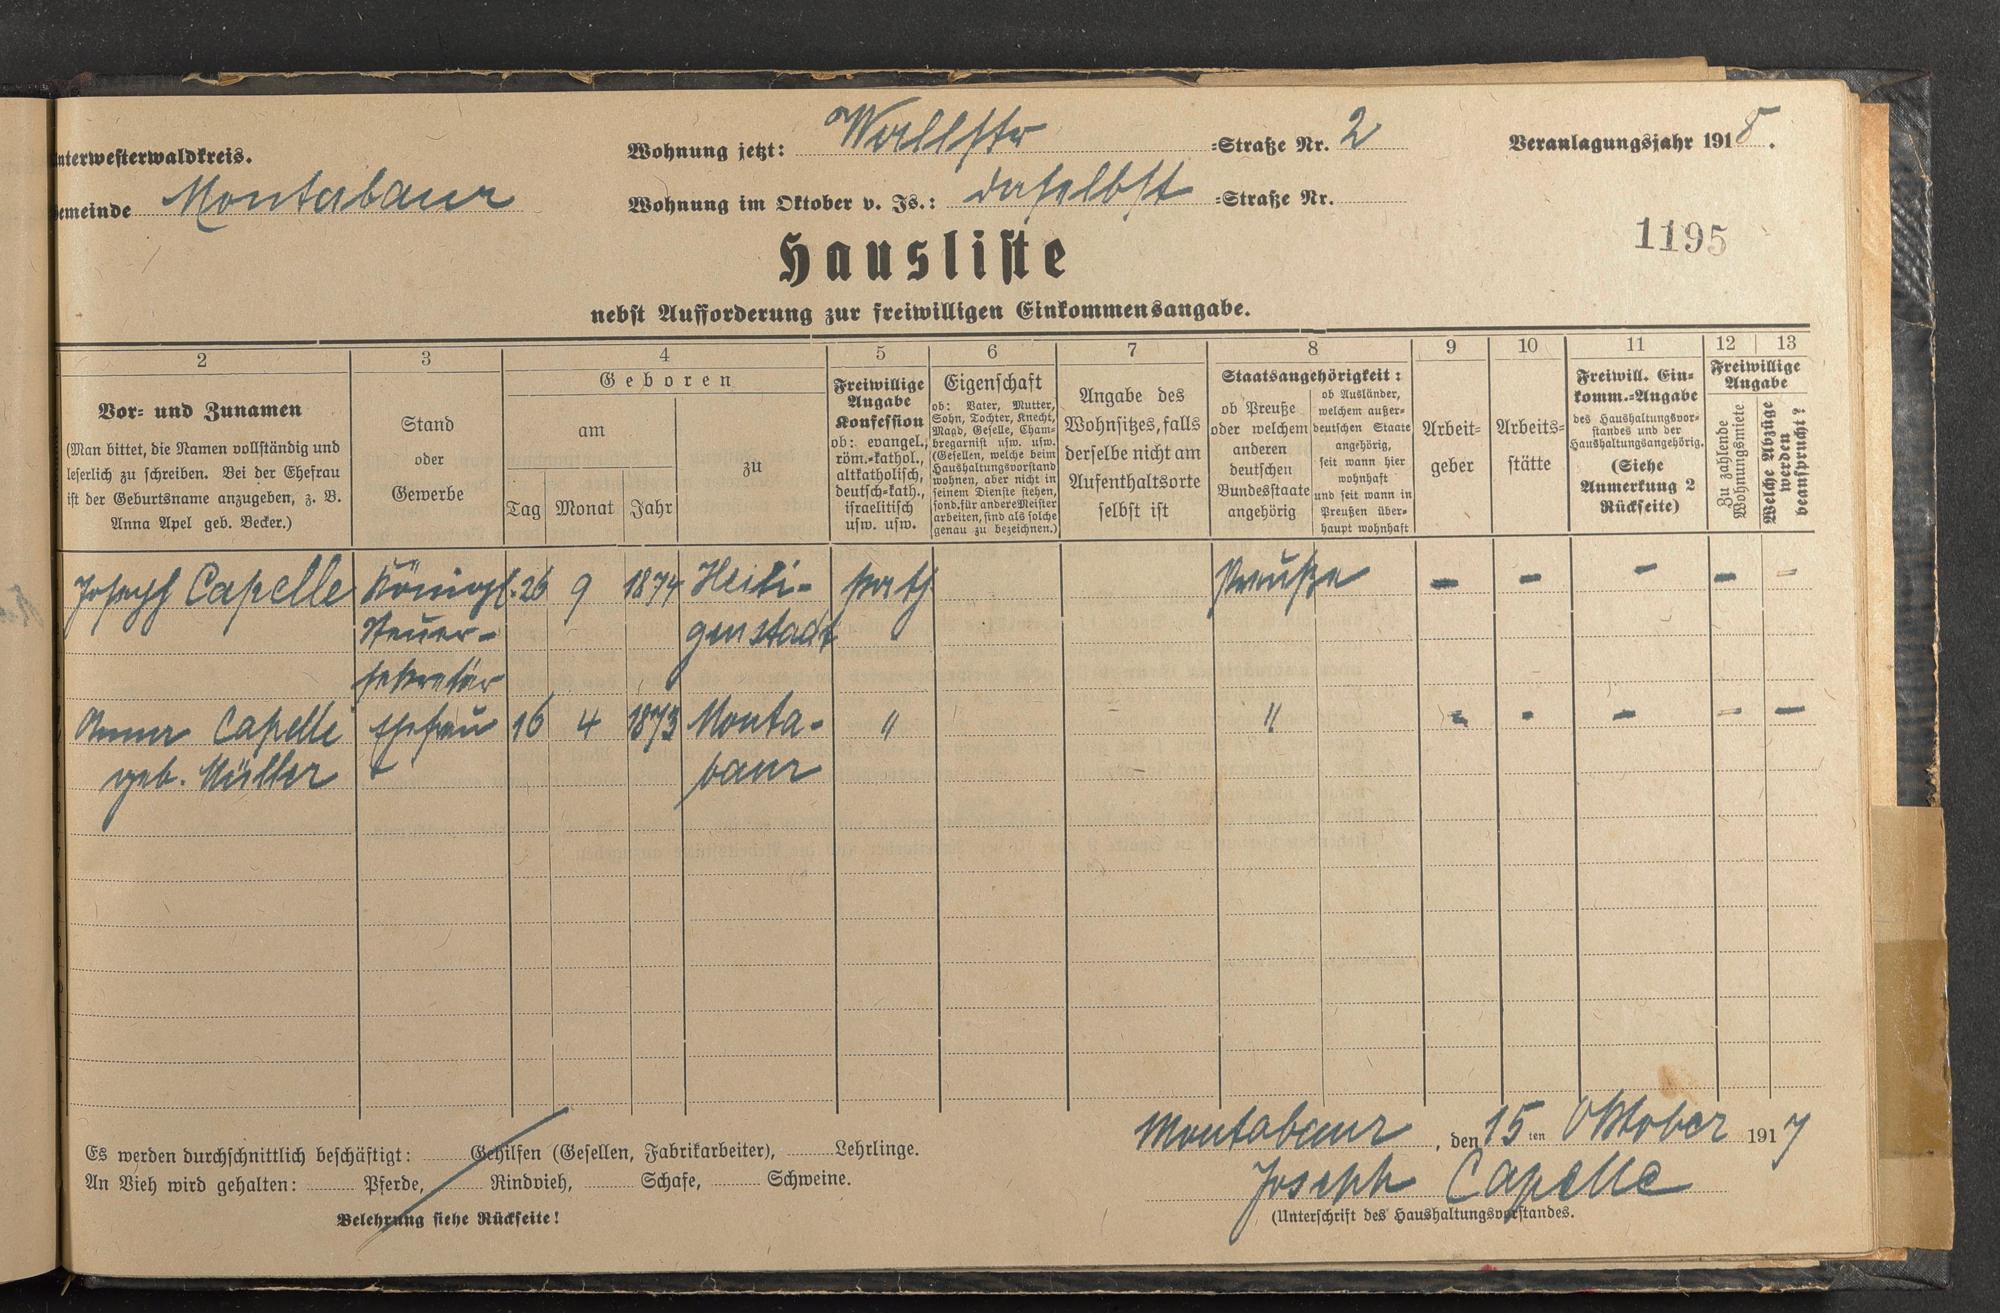 nterwesterwaldkreis.
Wohnung jetzt: Wallstr -Straße Nr. 2
Veranlagungsjahr 1918.
emeinde Montabaur
Wohnung im Oktober v. Js.: daselbst -Straße Nr.
1195
Hausliste
nebst Aufforderung zur freiwilligen Einkommensangabe.
2 3 4 5 6 7 8 9 10 11 12 13
Vor- und Zunamen
(Man bittet, die Namen vollständig und
leserlich zu schreiben. Bei der Ehefrau
ist der Geburtsname anzugeben, z. B.
Anna Apel geb. Becker.)
Stand
oder
Gewerbe
Geboren
am
Tag Monat Jahr
zu
Freiwillige
Angabe
Konfession
ob: evangel.,
röm.-kathol.,
altkatholisch,
deutsch-kath.,
israelitisch
usw. usw.
Eigenschaft
ob: Vater, Mutter,
Sohn, Tochter, Knecht,
Magd, Geselle, Cham-
bregarnist usw. usw.
(Gesellen, welche beim
Haushaltungsvorstand
wohnen, aber nicht in
seinem Dienste stehen,
sond. für andere Meister
arbeiten, sind als solche
genau zu bezeichnen.)
Angabe des
Wohnsitzes, falls
derselbe nicht am
Aufenthaltsorte
selbst ist
Staatsangehörigkeit:
ob Preuße
oder welchem
anderen
deutschen
Bundesstaate
angehörig
ob Ausländer,
welchem außer-
deutschen Staate
angehörig,
seit wann hier
wohnhaft
und seit wann in
Preußen über-
haupt wohnhaft
Arbeit-
geber
Arbeits-
stätte
Freiwill. Ein-
komm.-Angabe
des Haushaltungsvor-
standes und der
Haushaltungsangehörig.
(Siehe
Anmerkung 2
Rückseite)
Freiwillige
Angabe
Zu zahlende
Wohnungsmiete
Welche Abzüge
werden
beansprucht?
Joseph Capelle Königl. 26 9 1874 Heili- kath Preuße - - - - -
Steuer- genstadt
sekretär
Anna Capelle Ehefrau 16 4 1873 Monta- " " - - - - -
geb. Müller baur
Es werden durchschnittlich beschäftigt: Gehilfen (Gesellen, Fabrikarbeiter), Lehrlinge.
An Vieh wird gehalten: Pferde, Rindvieh, Schafe, Schweine.
Belehrung siehe Rückseite!
Montabaur, den 15ten Oktober 1917
Joseph Capelle
(Unterschrift des Haushaltungsvorstandes.